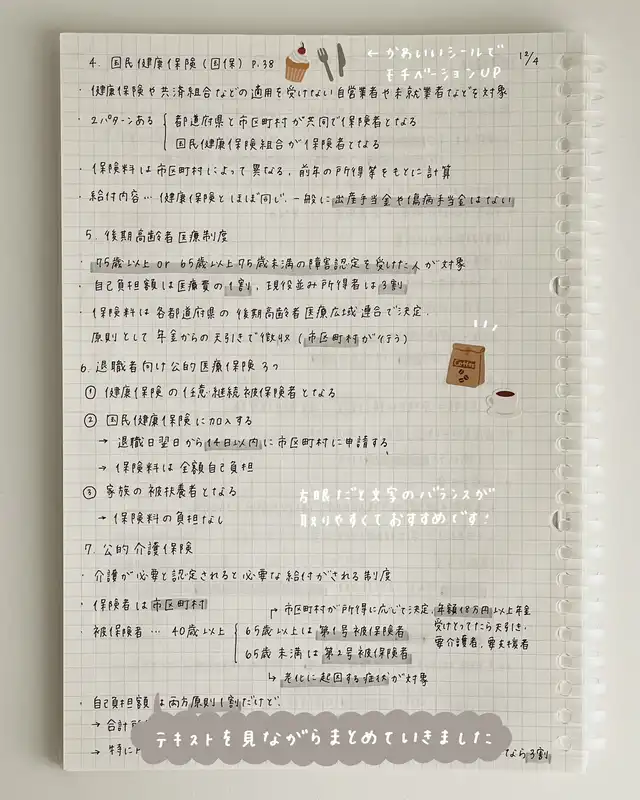 4. 国民健康保険(国保) P.38
←かわいいシールで
モチベーションUP
12/4
・健康保険や共済組合などの適用を受けない自営業者や未就業者などを対象
・2パターンある { 都道府県と市区町村が共同で保険者となる
国民健康保険組合が保険者となる
・保険料は市区町村によって異なる。前年の所得等をもとに計算
・給付内容…健康保険とほぼ同じ。一般に出産手当金や傷病手当金はない
5. 後期高齢者医療制度
・75歳以上 or 65歳以上75歳未満の障害認定を受けた人が対象
・自己負担額は医療費の1割、現役並み所得者は3割
・保険料は各都道府県の後期高齢者医療広域連合で決定。
原則として年金からの天引きで徴収(市区町村が行う)
Coffee
6. 退職者向け公的医療保険3つ
① 健康保険の任意継続被保険者となる
② 国民健康保険に加入する
→ 退職日翌日から14日以内に市区町村に申請する。
→ 保険料は全額自己負担
③ 家族の被扶養者となる
→ 保険料の負担なし
方眼だと文字のバランスが
取りやすくておすすめです!
7. 公的介護保険
・介護が必要と認定されると必要な給付がされる制度
・保険者は市区町村
市区町村が所得に応じて決定。年額18万円以上年金
受けとってたら天引き。
要介護者、要支援者
・被保険者…40歳以上 { 65歳以上は第1号被保険者
65歳未満は第2号被保険者
↳ 老化に起因する症状が対象
・自己負担額は両方原則1割だけど、
→ 合計所
→ 特に
なら3割
テキストを見ながらまとめていきました